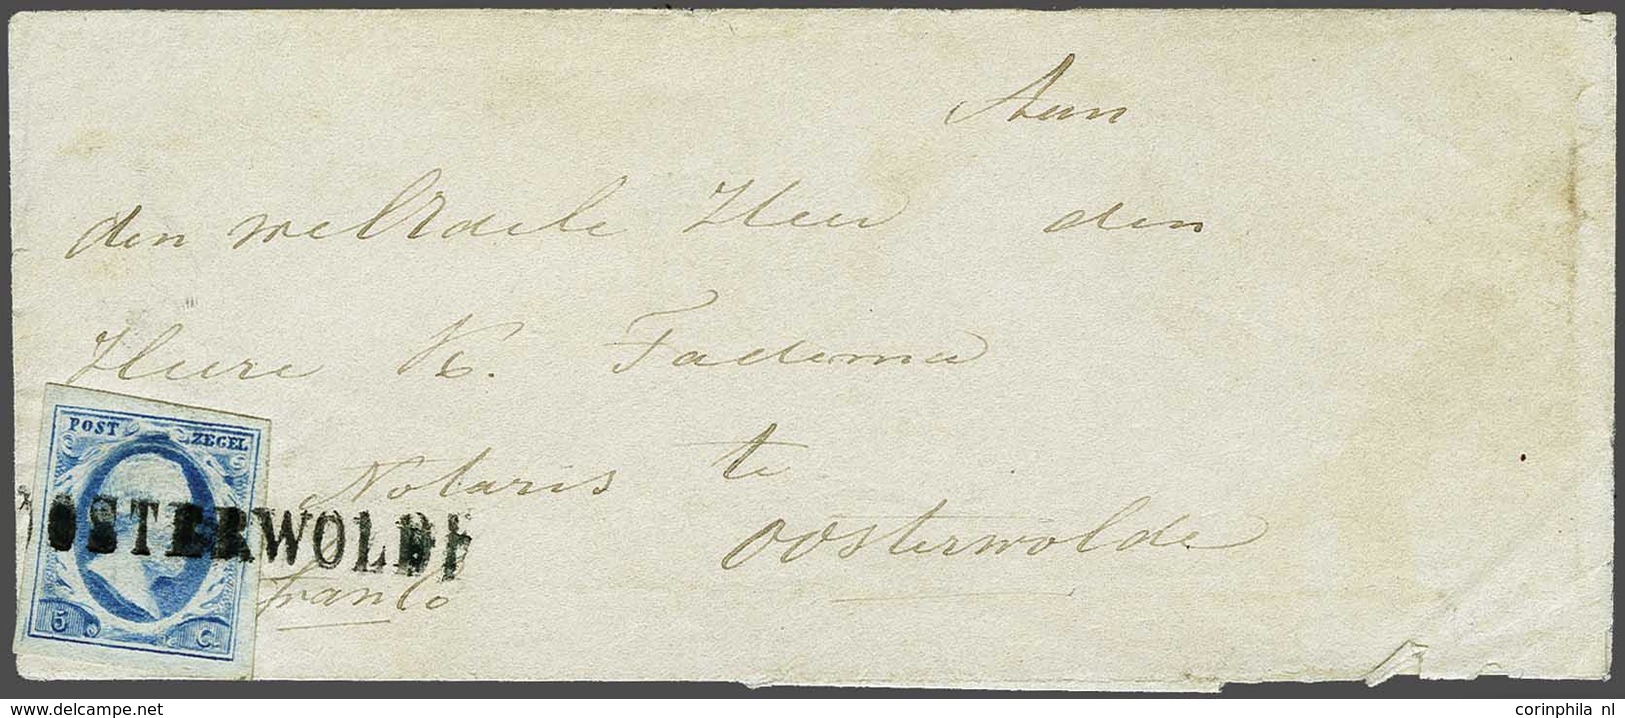 Aan
den welEdele Heer den
Heere K. Fadema
Notaris te
Oosterwolde
franco
POST ZEGEL
OOSTERWOLDE
5 C.
www.delcampe.net
corinphila nl